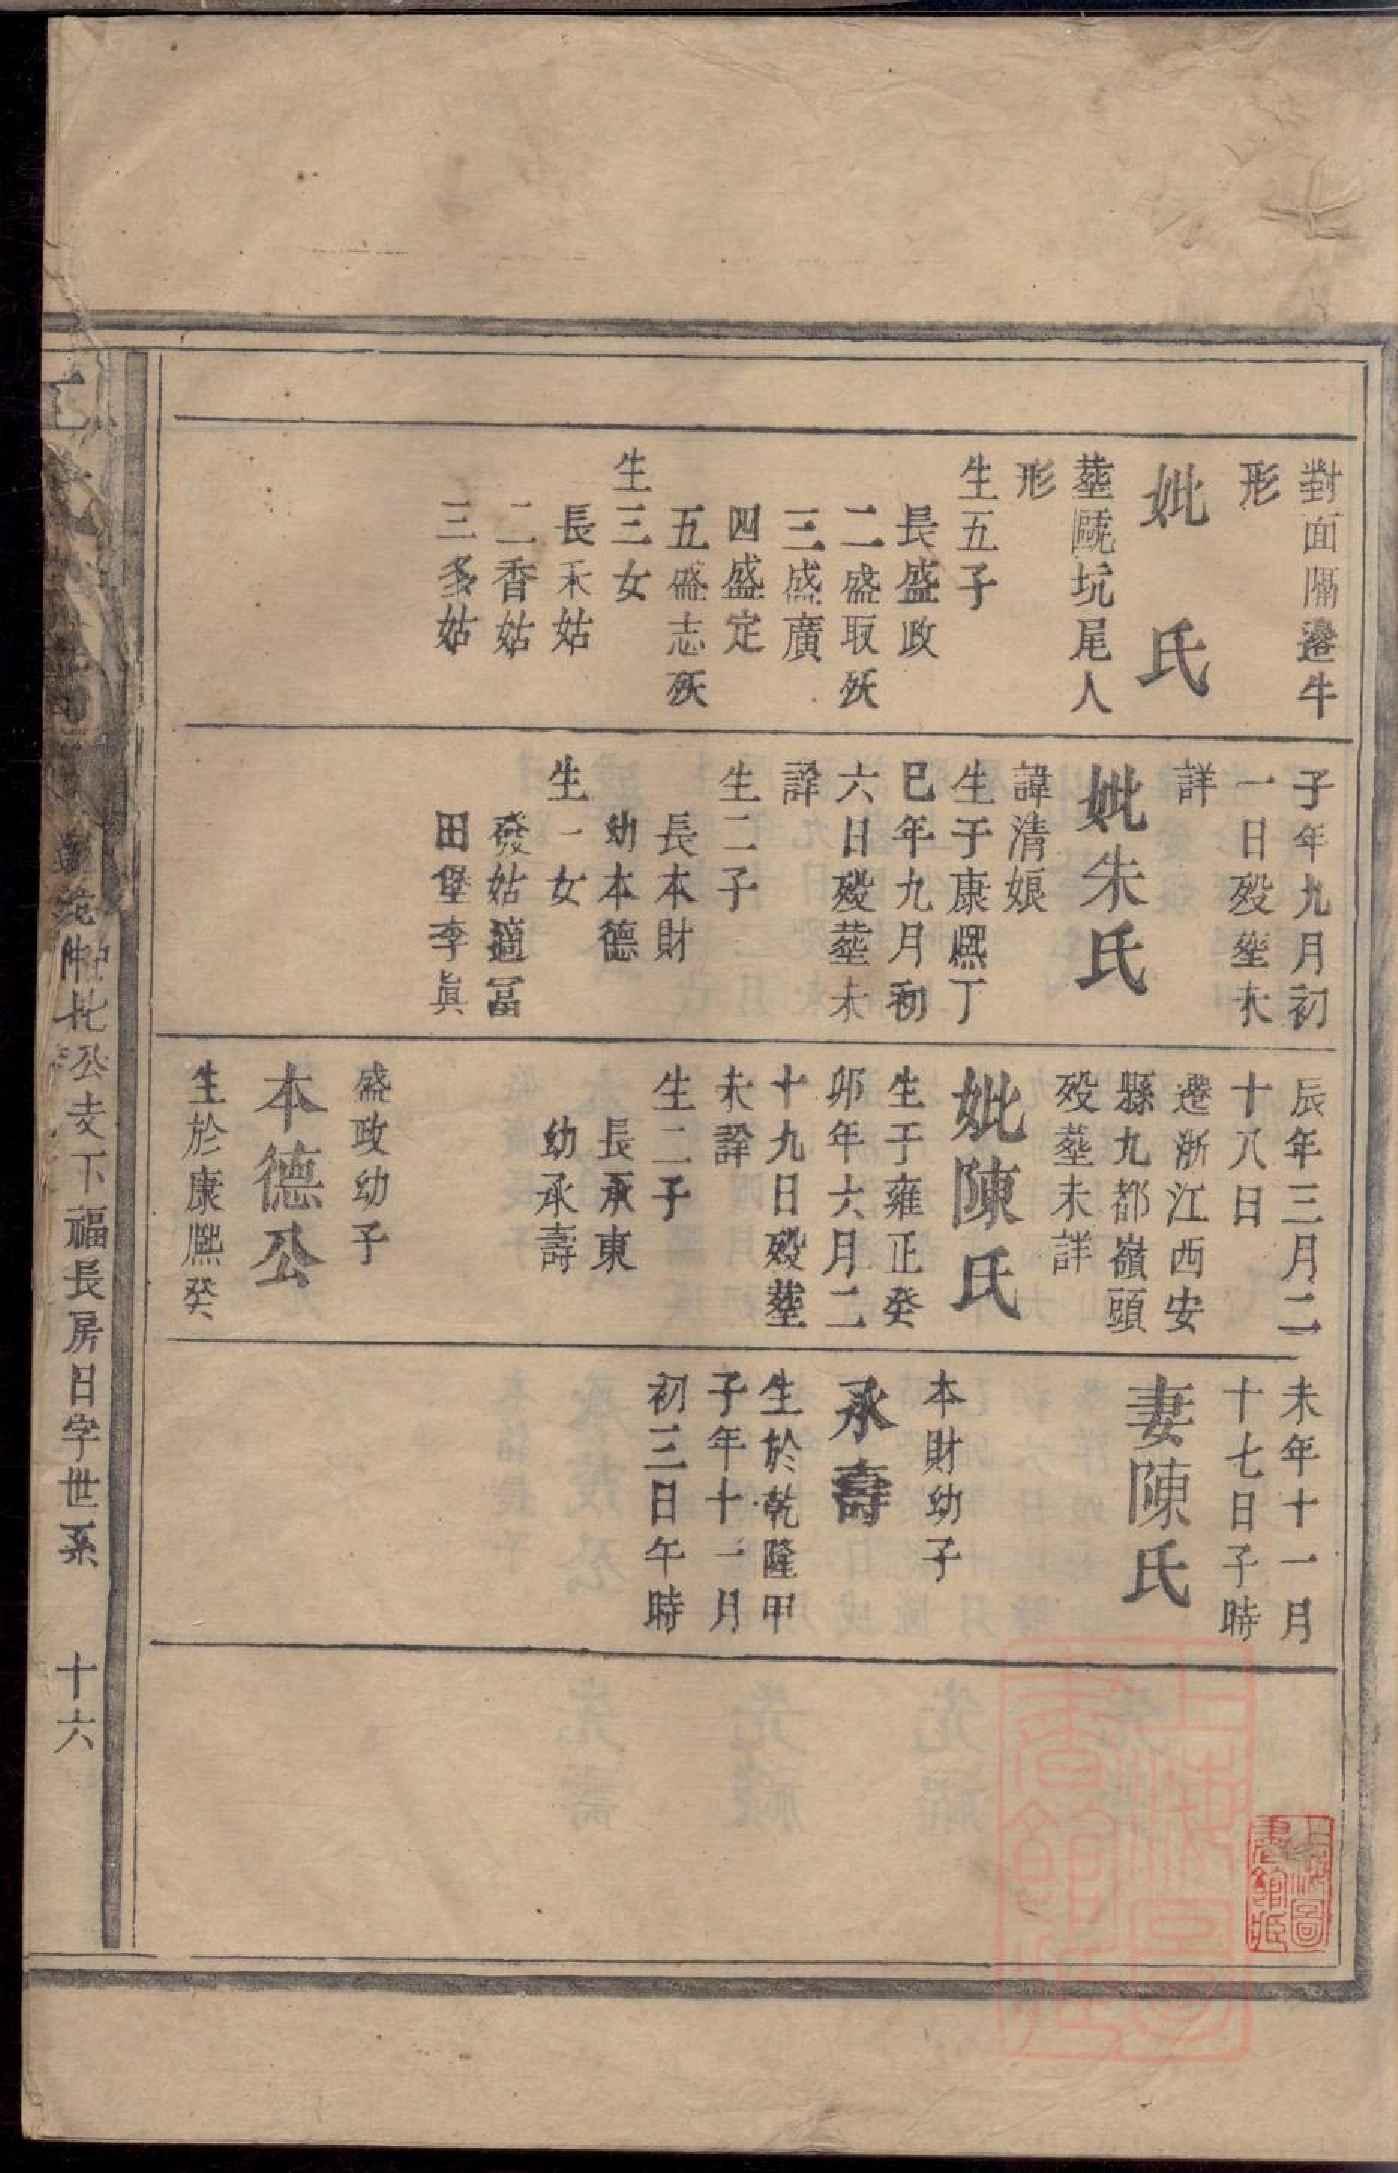 對面隔邊牛
形
妣氏
塟甌坑尾人
形
生五子
長盛政
二盛取殀
三盛廣
四盛定
五盛志殀
生三女
長禾姑
二香姑
三多姑
子年九月初
一日歿塟未
詳
妣朱氏
諱清娘
生于康熈丁
巳年九月初
六日歿塟未
詳
生二子
長本財
幼本德
生一女
發姑適冨
田堡李眞
辰年三月二
十八日
遷浙江西安
縣九都嶺頭
歿塟未詳
妣陳氏
生于雍正癸
卯年六月二
十九日歿塟
未詳
生二子
長承東
幼承壽
盛政幼子
本德公
生於康熈癸
未年十一月
十七日子時
妻陳氏
本財幼子
承壽
生於乾隆甲
子年十一月
初三日午時
公支下福長房日字世系
十六
上海圖
書館藏